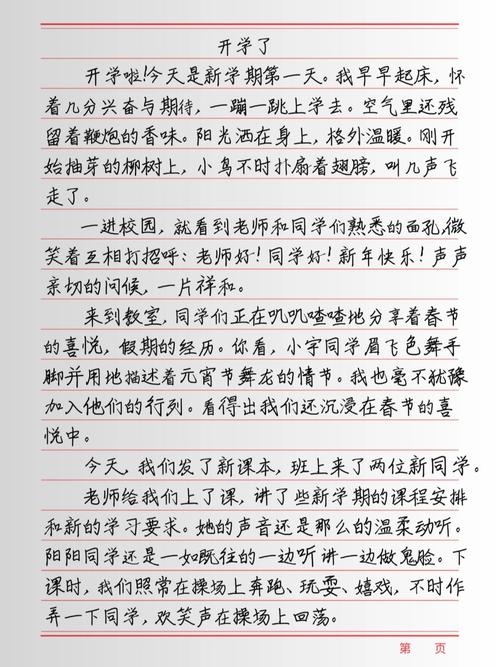 开学了
开学啦!今天是新学期第一天。我早早起床，怀
着几分兴奋与期待，一蹦一跳上学去。空气里还残
留着鞭炮的香味。阳光洒在身上，格外温暖。刚开
始抽芽的柳树上，小鸟不时扑扇着翅膀，叫几声飞
走了。
一进校园，就看到老师和同学们熟悉的面孔,微
笑着互相打招呼：老师好！同学好！新年快乐！声声
亲切的问候，一片祥和。
来到教室，同学们正在叽叽喳喳地分享着春节
的喜悦，假期的经历。你看，小宇同学眉飞色舞手
脚并用地描述着元宵节舞龙的情节。我也毫不犹豫
加入他们的行列。看得出我们还沉浸在春节的喜
悦中。
今天，我们发了新课本，班上来了两位新同学。
老师给我们上了课，讲了些新学期的课程安排
和新的学习要求。她的声音还是那么的温柔动听。
阳阳同学还是一如既往的一边听讲一边做鬼脸。下
课时，我们照常在操场上奔跑、玩耍、嬉戏，不时作
弄一下同学，欢笑声在操场上回荡。
第 页